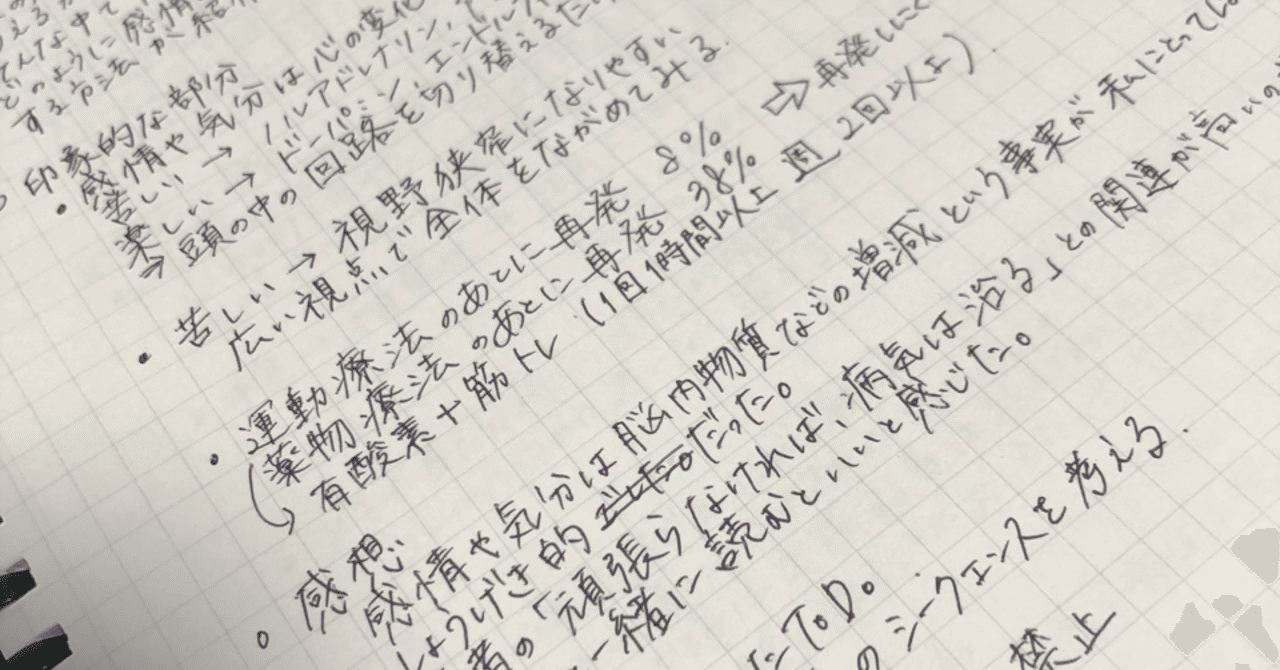 そんな中で
どのように感情
する方法が紹介
印象的な部分
・感情や気分は心の変化
苦しい → ノルアドレナリン,
楽しい → ドーパミン エンドルフィ
→ 頭の中の回路を切り替えるだけ
・苦しい → 視野狭窄になりやすい
広い視点で全体をながめてみる.
・運動療法のあとに再発 8%
薬物療法のあとに再発 38% ⇨ 再発しにくい
有酸素+筋トレ (1回1時間以上 週2回以上)
○ 感想
感情や気分は脳内物質などの増減という事実が私にとって
しょうげき的だった。
者の「頑張らなければ、病気は治る」との関連が高いの
一緒に読むといいと感じた。
ToDo
のシークエンスを考える.
禁止